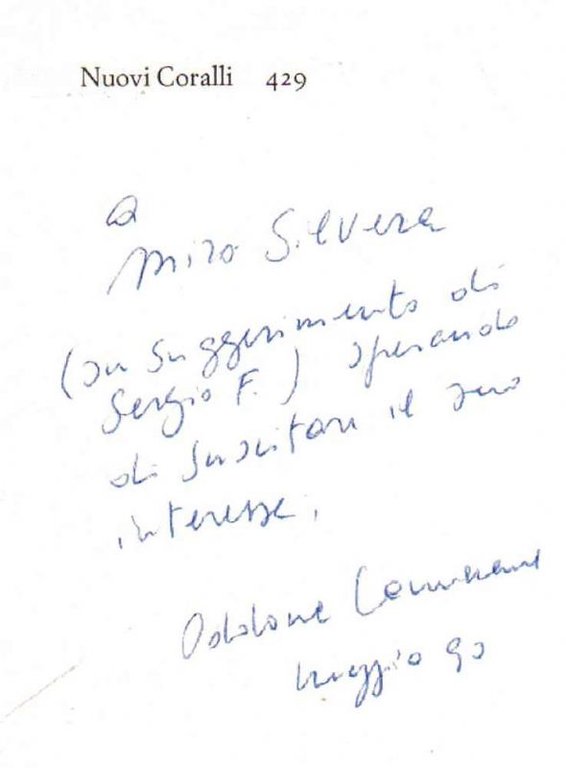 Nuovi Coralli 429
a
Miro Silvera
(su suggerimento di
Sergio F.) sperando
di suscitare il suo
interesse,
Oddone Camerana
maggio 90